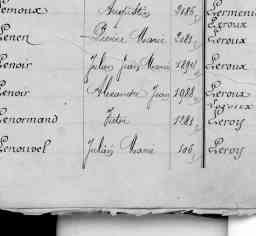 Lemoux Augustin 2186 Lermeni
Leroux
Lenen Pierre Marie 2081 Leroux
Lenoir Julien Jean Marie Leroux
Lenoir Alexandre Jean 1988 Leroux
Lenormand Victor 1281 Leroy
Lenouvel Julien Marie 106 Leroy